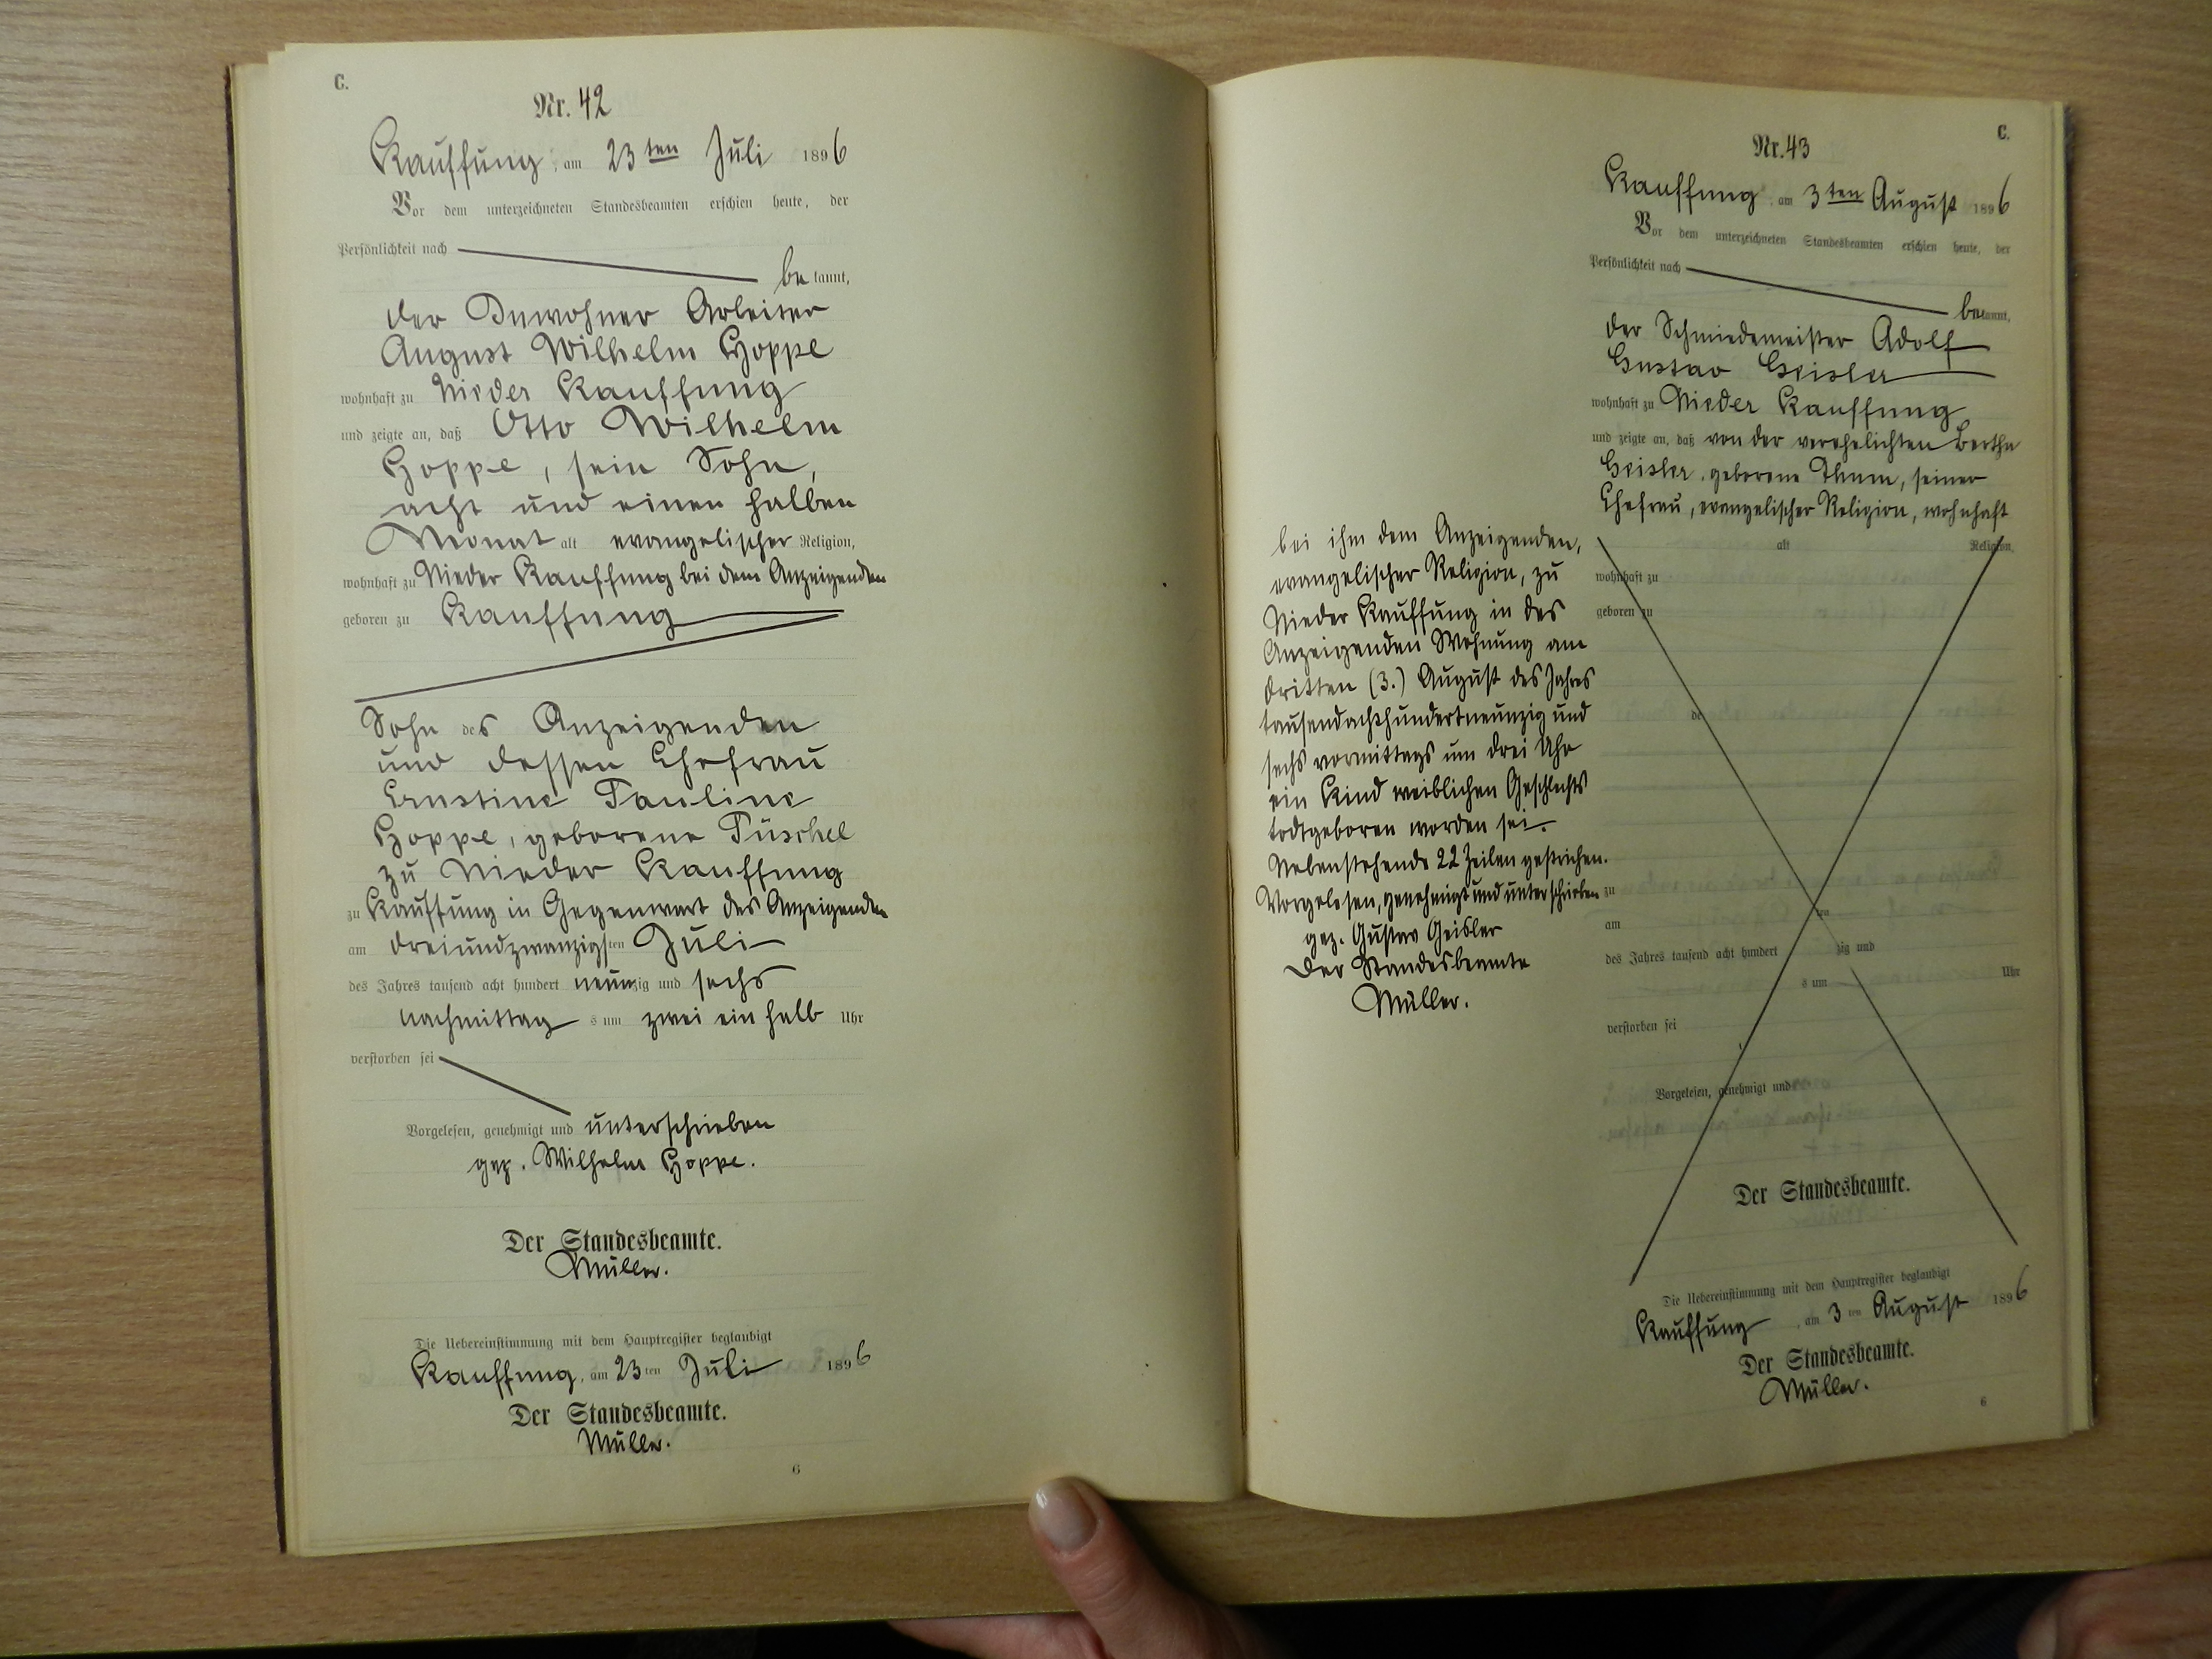 C.
Nr. 42
Kauffung, am 23ten Juli 1896
Vor dem unterzeichneten Standesbeamten erschien heute, der
Persönlichkeit nach
bekannt,
der Inwohner Arbeiter
August Wilhelm Hoppe
wohnhaft zu Nieder Kauffung
und zeigte an, daß Otto Wilhelm
Hoppe, sein Sohn,
acht und einen halben
Monat alt evangelischer Religion,
wohnhaft zu Nieder Kauffung bei dem Anzeigenden
geboren zu Kauffung
Sohn des Anzeigenden
und dessen Ehefrau
Ernstine Pauline
Hoppe, geborene Püschel
zu Nieder Kauffung
zu Kauffung in Gegenwart des Anzeigenden
am dreiundzwanzigsten Juli
des Jahres tausend acht hundert neunzig und sechs
nachmittags um zwei ein halb Uhr
verstorben sei
Vorgelesen, genehmigt und unterschrieben
gez. Wilhelm Hoppe.
Der Standesbeamte.
Müller.
Die Uebereinstimmung mit dem Hauptregister beglaubigt
Kauffung, am 23ten Juli 1896
Der Standesbeamte.
Müller.
6
C.
Nr. 43
Kauffung, am 3ten August 1896
Vor dem unterzeichneten Standesbeamten erschien heute, der
Persönlichkeit nach
bekannt,
der Schmiedemeister Adolf
Gustav Geisler
wohnhaft zu Nieder Kauffung
und zeigte an, daß von der verehelichten Bertha
Geisler, geborene Thum, seiner
Ehefrau, evangelischer Religion, wohnhaft
bei ihm dem Anzeigenden,
evangelischer Religion, zu
Nieder Kauffung in des
Anzeigenden Wohnung am
dritten (3.) August des Jahres
tausendachthundertneunzig und
sechs vormittags um drei Uhr
ein Kind weiblichen Geschlechts
todtgeboren worden sei.
Nebenstehende 22 Zeilen gestrichen.
Vorgelesen, genehmigt und unterschrieben
gez. Gustav Geisler
Der Standesbeamte
Müller.
alt Religion,
wohnhaft zu
geboren zu
de
zu
am ten
des Jahres tausend acht hundert zig und
s um Uhr
verstorben sei
Vorgelesen, genehmigt und
Der Standesbeamte.
Die Uebereinstimmung mit dem Hauptregister beglaubigt
Kauffung, am 3ten August 1896
Der Standesbeamte.
Müller.
6